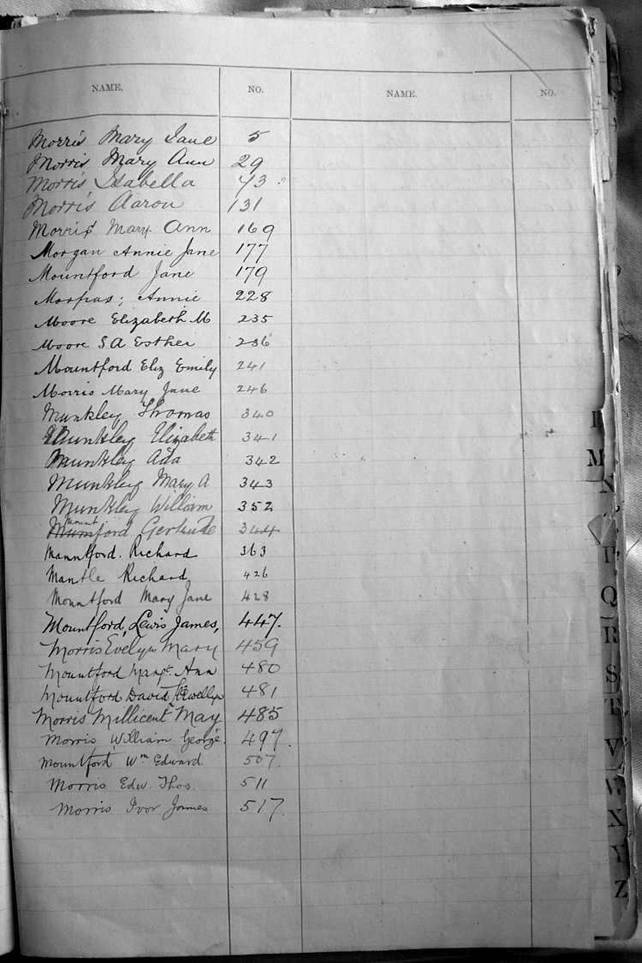 NAME. NO. NAME. NO.
Morris Mary Jane 5
Morris Mary Ann 29
Morris Isabella 43
Morris Aaron 131
Morris Mary Ann 169
Morgan Annie Jane 177
Mountford Jane 179
Annie 228
Moore Elizabeth M 235
Moore S A Esther 236
Mountford Eliz Emily 241
Morris Mary Jane 246
Munkley Thomas 340
Munkley Elizabeth 341
Munkley Ada 342
Munkley Mary A 343
Munkley William 352
Gertrude 344
Richard 363
Mantle Richard 426
Mountford Mary Jane 428
Mountford, Lewis James, 447.
Morris Evelyn Mary 459
Mountford Margt. Ann 480
Mountford David Llewellyn 481
Morris Millicent May 485
Morris William George. 497.
Mountford Wm Edward 507.
Morris Edw. Thos. 511
Morris Ivor James 517.
M
Q
R
S
V
X
Y
Z